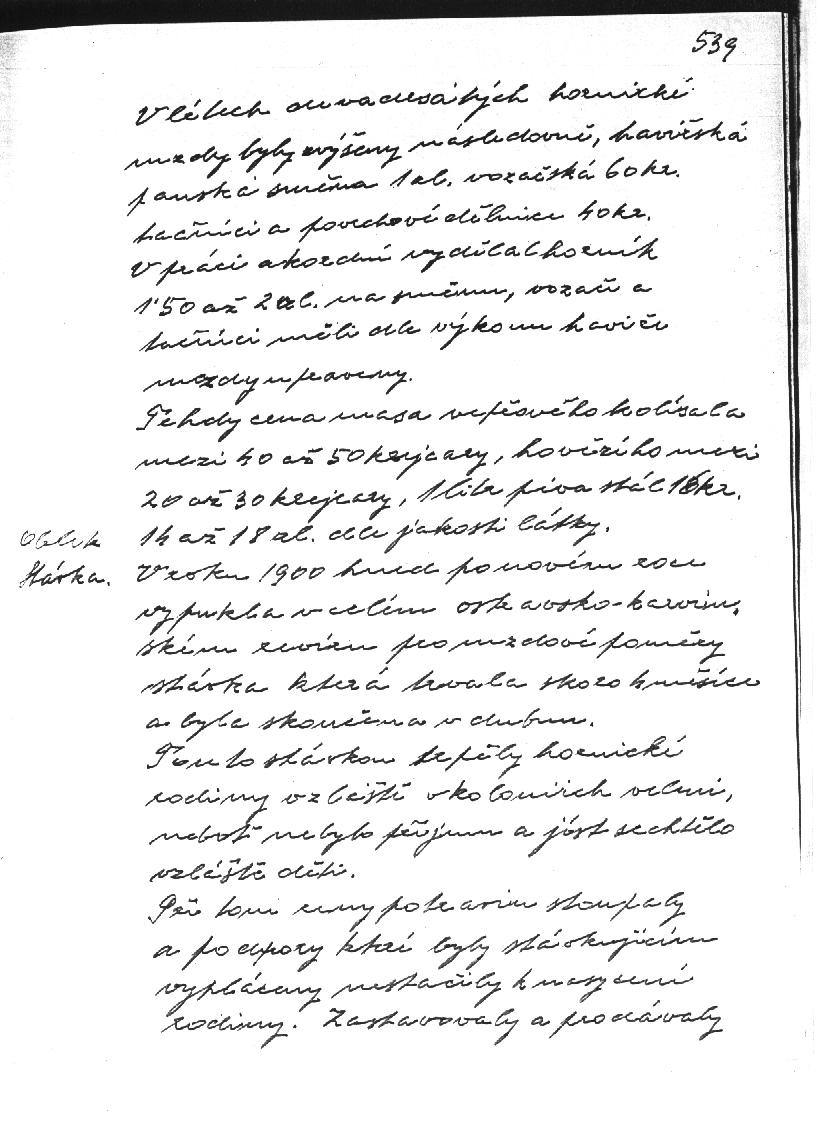 539
V létech devadesátých hornické
mzdy byly zvýšeny následovně, havířská
panská směna 1 zl. vozačská 60 kr.
tačníci a povrchové dělnice 40 kr.
V práci akordní vydělal horník
1'50 až 2 zl. na směnu, vozači a
tačníci měli dle výkonu havíře
mzdy upraveny.
Tehdy cena masa vepřového kolísala
mezi 40 až 50 krejcary, hovězího mezi
20 až 30 krejcary, 1 litr piva stál 16 kr.
Oblek 14 až 18 zl. dle jakosti látky.
Stávka. V roku 1900 hned po novém roce
vypukla v celém ostravsko-karvin,
ském revíru pro mzdové poměry
stávka která trvala skoro
a byla skončena v dubnu.
Touto stávkou trpěly hornické
rodiny vzláště v koloniích velmi,
neboť nebylo příjmu a jíst se chtělo
vzláště děti.
Při tom ceny potravin stoupaly
a podpory které byly stávkujícím
vypláceny nestačily k nasycení
rodiny. Zastavovaly a prodávaly